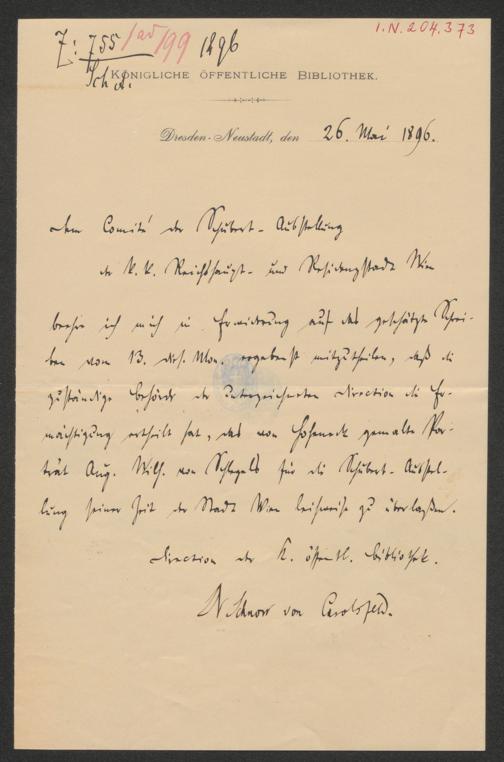 I.N. 204.373
Z: 755/ad 199 1896
Sch. A.
KÖNIGLICHE ÖFFENTLICHE BIBLIOTHEK.
Dresden-Neustadt, den 26. Mai 1896.
Dem Comité der Schubert-Ausstellung
der k. k. Reichshaupt- und Residenzstadt Wien
beehre ich mich in Erwiderung auf das geschätzte Schrei-
ben vom 13. dis. Mon. ergebenst mitzutheilen, daß die
zuständige Behörde der unterzeichneten Direction die Er-
mächtigung ertheilt hat, das von Hoheneck gemalte Por-
trät Aug. Wilh. von Schlegels für die Schubert-Ausstel-
lung seiner Zeit der Stadt Wien leihweise zu überlaßen.
Direction der K. öffentl. Bibliothek.
Schnorr von Carolsfeld.